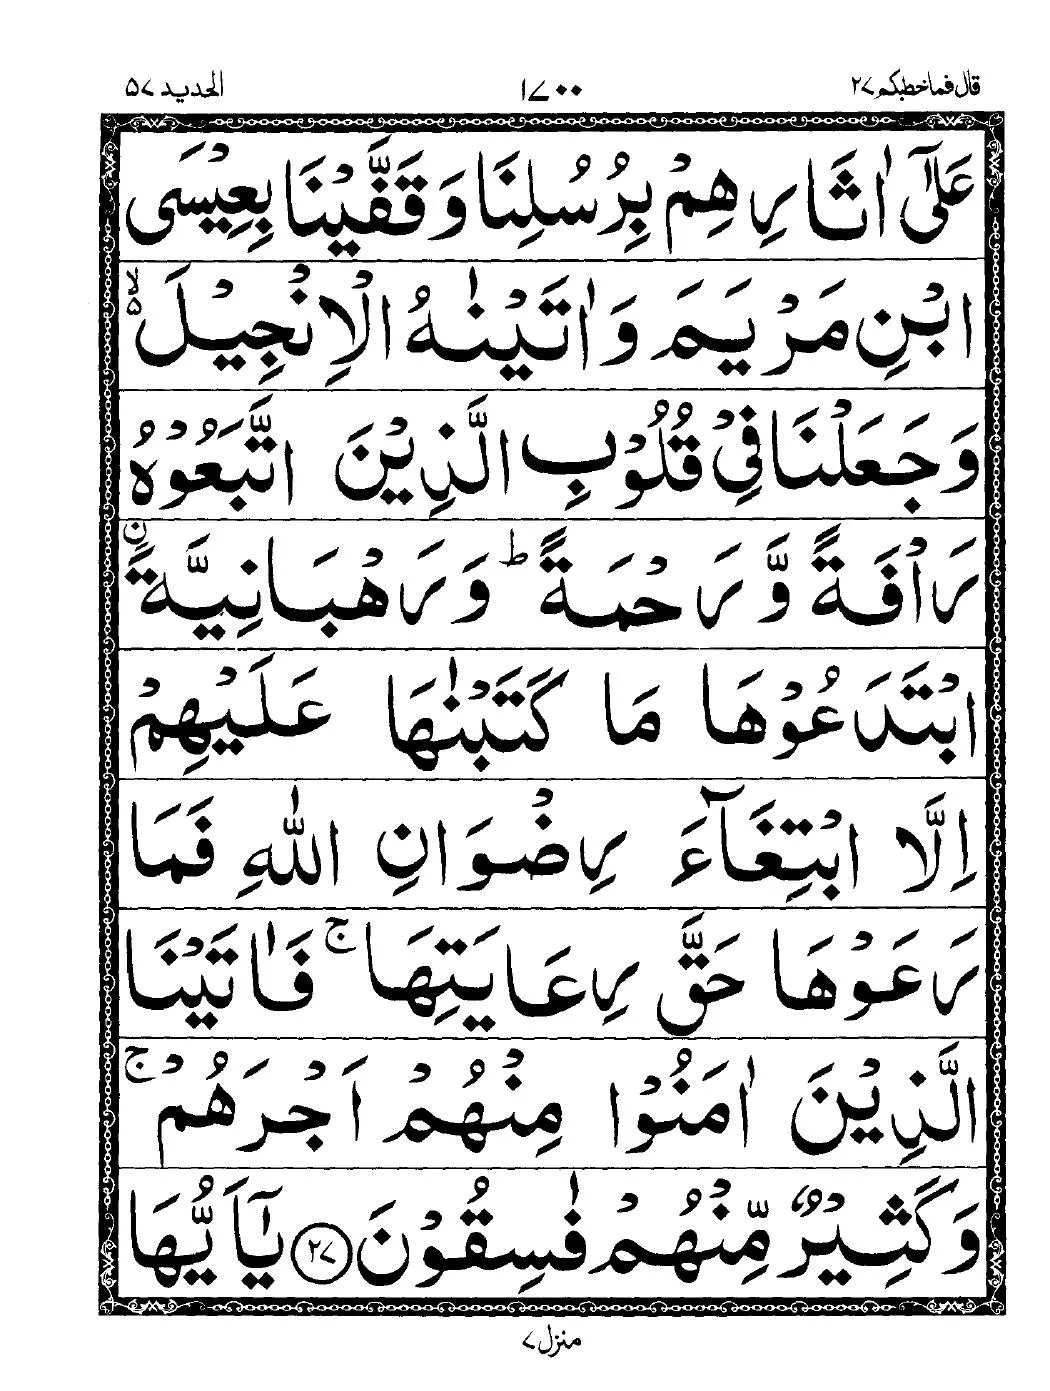 قال فما خطبكم ۲۷ ۱۷۰۰ الحدید ۵۷
عَلٰۤی اٰثَارِهِمْ بِرُسُلِنَا وَ قَفَّیْنَا بِعِیْسَی
ابْنِ مَرْیَمَ وَ اٰتَیْنٰهُ الْاِنْجِیْلَ ۙ۵
وَ جَعَلْنَا فِیْ قُلُوْبِ الَّذِیْنَ اتَّبَعُوْهُ
رَاْفَةً وَّ رَحْمَةً ؕ وَ رَهْبَانِیَّةَ ِ۟ن
ابْتَدَعُوْهَا مَا كَتَبْنٰهَا عَلَیْهِمْ
اِلَّا ابْتِغَآءَ رِضْوَانِ اللّٰهِ فَمَا
رَعَوْهَا حَقَّ رِعَایَتِهَا ۚ فَاٰتَیْنَا
الَّذِیْنَ اٰمَنُوْا مِنْهُمْ اَجْرَهُمْ ۚ
وَ كَثِیْرٌ مِّنْهُمْ فٰسِقُوْنَ ﴿۲۷﴾ یٰۤاَیُّهَا
منزل ۷